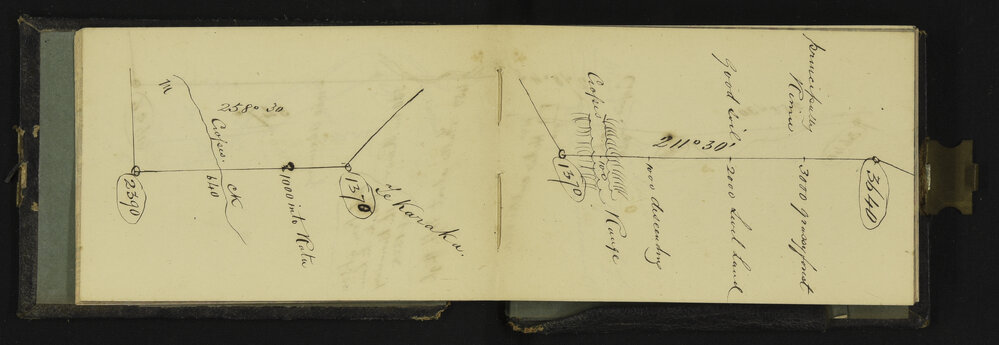 m
258° 30
Crosses. ck
640
2390
1000 into Rata
1370
Te Karaka.
Crosses 700 Range
1370
211° 30'
1100 descending
good soil - 2000 Level land
principally Rimu
- 3000 grassy forest
3640